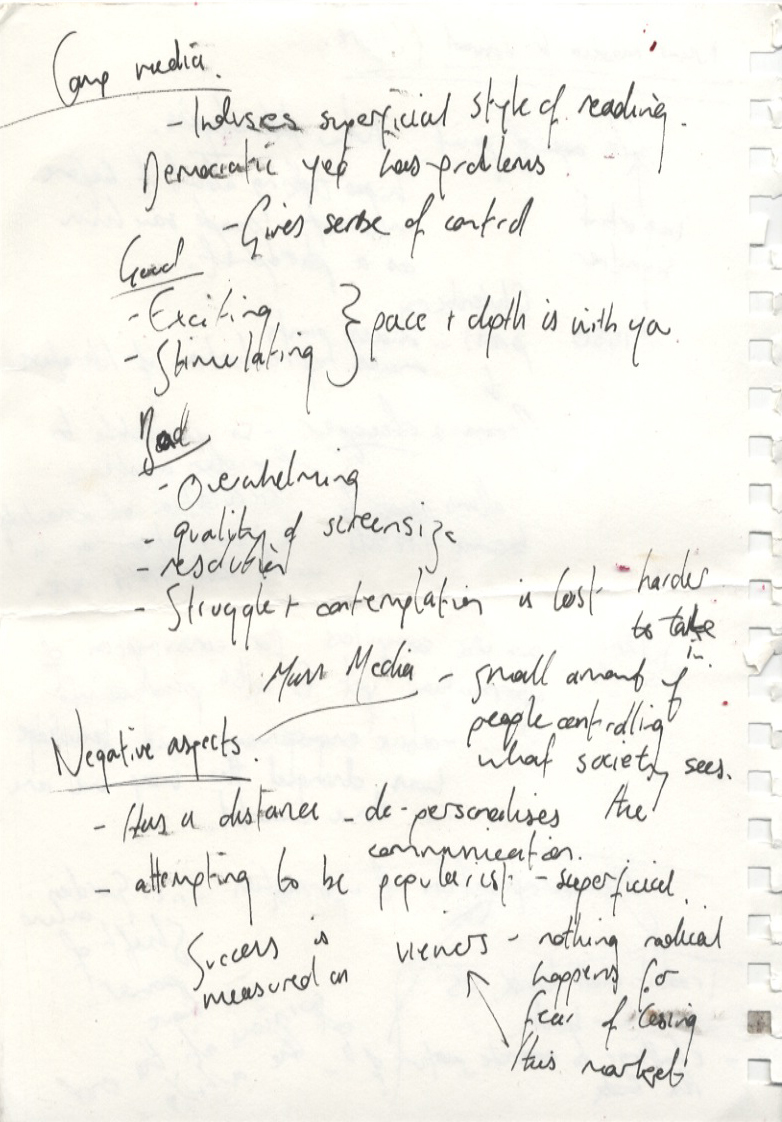 Comp media.
- Induses superficial style of reading.
Democratic yep has problems
- Gives sense of control
Good
- Exciting
- Stimulating } pace + depth is with you
Bad
- Overwhelming
- quality of screensize
- resolution
- Struggle + contemplation is lost - harder
to take
in.
Mass Media - small amount of
people controlling
what society sees.
Negative aspects.
- Has a distance - de-personalises the
communication.
- attempting to be popularist - superficial.
Success is
measured on
views - nothing radical
happens for
fear of losing
this market